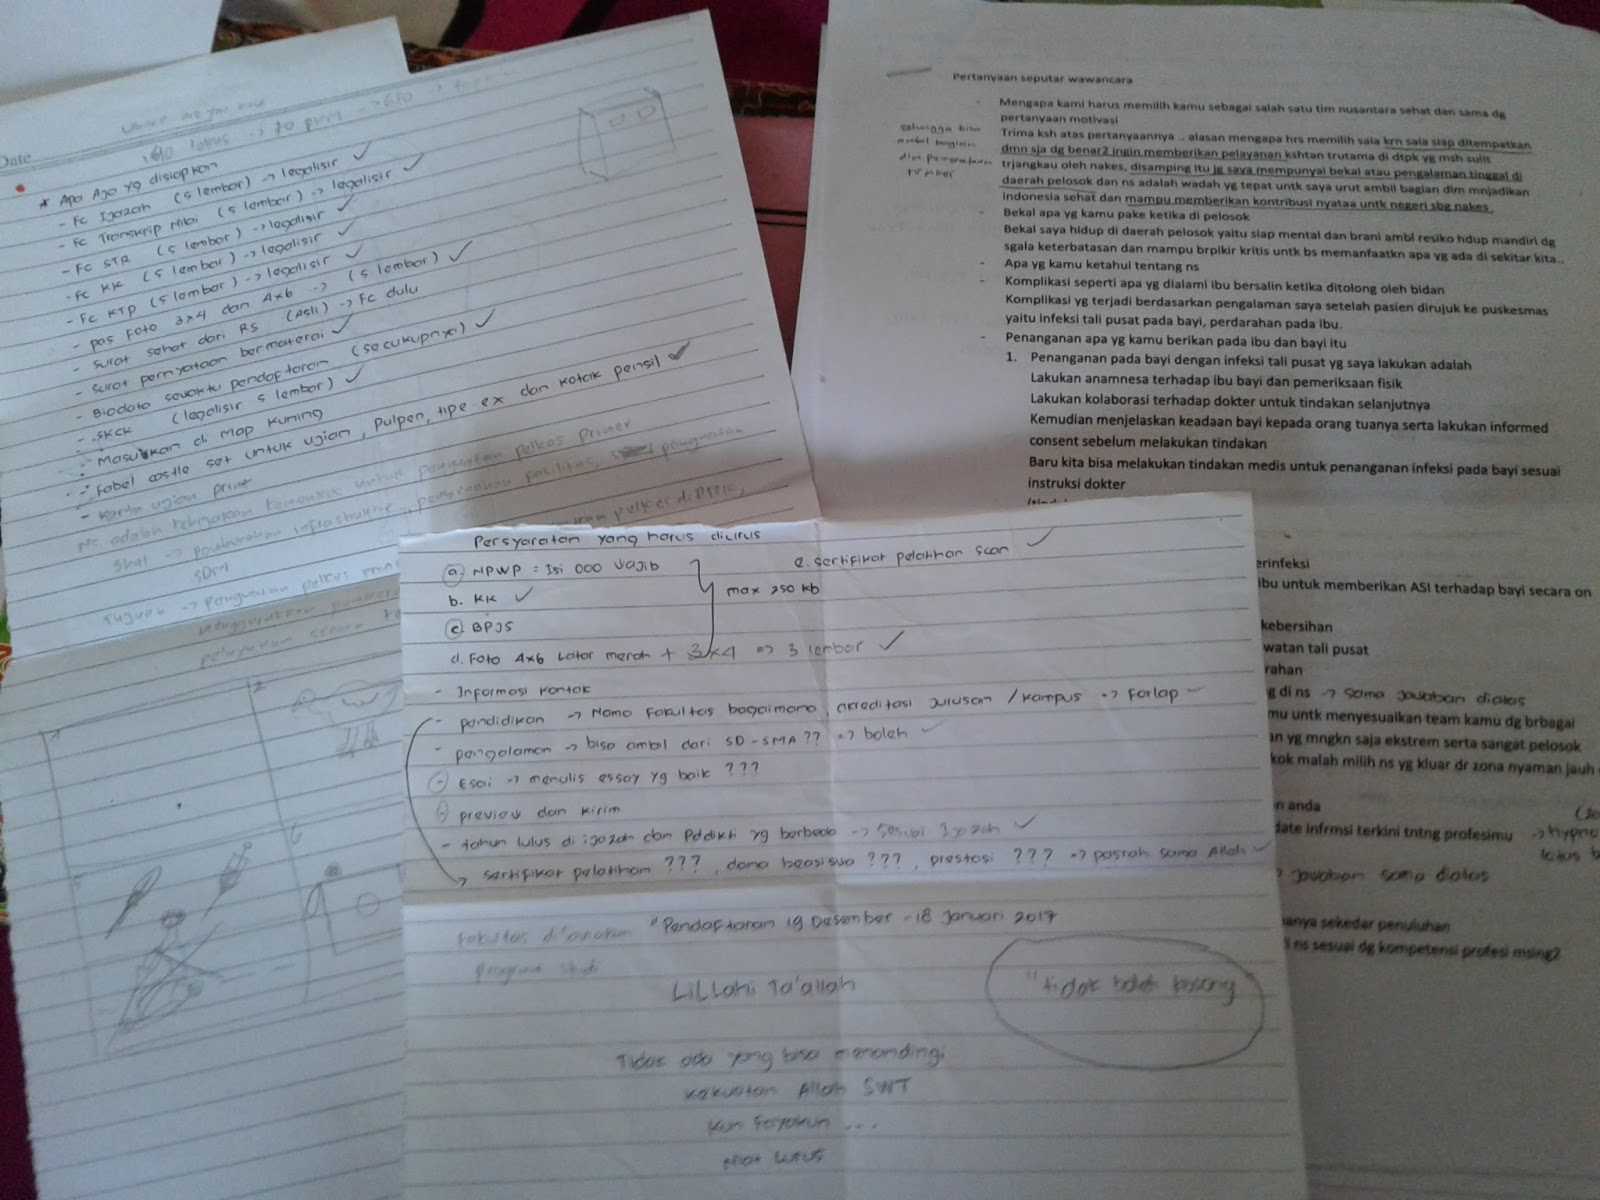 Date
160 lokus -> 70 prim
* Apa Aja yg disiapkan
- Fc Ijazah (5 lembar) -> legalisir ✓
- Fc Transkrip Nilai (5 lembar) -> legalisir ✓
- Fc STR (5 lembar) -> legalisir ✓
- Fc KK (5 lembar) -> legalisir ✓
- Fc KTP (5 lembar) -> legalisir ✓
- pas Foto 3x4 dan 4x6 -> (5 lembar) ✓
- Surat sehat dari RS (Asli) -> Fc dulu
- Surat pernyataan bermaterai ✓
- Biodata sewaktu pendaftaran (secukupnya) ✓
- SKCK (legalisir 5 lembar) ✓
- Masukkan di Map Kuning
- Fabel castle set untuk ujian, Pulpen, tipe-ex dan kotak pensil ✓
- Kartu ujian
Ns adalah kebijakan kemenkes untuk penguatan pelkes primer
SDM
Tujuan -> penguatan pelkes
Pertanyaan seputar wawancara
- Mengapa kami harus memilih kamu sebagai salah satu tim nusantara sehat dan sama dg
pertanyaan motivasi
Trima ksh atas pertanyaannya .. alasan mengapa hrs memilih sala krn sala siap ditempatkan
dmn sja dg benar2 ingin memberikan pelayanan kshtan trutama di dtpk yg msh sulit
trjangkau oleh nakes, disamping itu jg saya mempunyai bekal atau pengalaman tinggal di
daerah pelosok dan ns adalah wadah yg tepat untk saya urut ambil bagian dlm mnjadikan
indonesia sehat dan mampu memberikan kontribusi nyataa untk negeri sbg nakes.
sehingga bisa
ambil bagian
- Bekal apa yg kamu pake ketika di pelosok
Bekal saya hidup di daerah pelosok yaitu siap mental dan brani ambl resiko hdup mandiri dg
sgala keterbatasan dan mampu brpikir kritis untk bs memanfaatkn apa yg ada di sekitar kita..
- Apa yg kamu ketahui tentang ns
- Komplikasi seperti apa yg dialami ibu bersalin ketika ditolong oleh bidan
Komplikasi yg terjadi berdasarkan pengalaman saya setelah pasien dirujuk ke puskesmas
yaitu infeksi tali pusat pada bayi, perdarahan pada ibu.
- Penanganan apa yg kamu berikan pada ibu dan bayi itu
1. Penanganan pada bayi dengan infeksi tali pusat yg saya lakukan adalah
Lakukan anamnesa terhadap ibu bayi dan pemeriksaan fisik
Lakukan kolaborasi terhadap dokter untuk tindakan selanjutnya
Kemudian menjelaskan keadaan bayi kepada orang tuanya serta lakukan informed
consent sebelum melakukan tindakan
Baru kita bisa melakukan tindakan medis untuk penanganan infeksi pada bayi sesuai
instruksi dokter
erinfeksi
ibu untuk memberikan ASI terhadap bayi secara on
kebersihan
watan tali pusat
rahan
g di ns -> sama jawaban diatas
mu untk menyesuaikan team kamu dg brbagai
an yg mngkn saja ekstrem serta sangat pelosok
kok malah milih ns yg kluar dr zona nyaman jauh
n anda
date infrmsi terkini tntng profesimu -> hypno
jawaban sama diatas
hanya sekedar penuluhan
i ns sesuai dg kompetensi profesi msing2
Persyaratan yang harus diurus
a. NPWP = Isi 000 Wajib
b. KK ✓
c. BPJS
max 250 kb
e. sertifikat pelatihan scan ✓
d. Foto 4x6 Latar merah + 3x4 => 3 lembar ✓
- Informasi kontak
- pendidikan -> Nama Fakultas bagaimana, akreditasi jurusan / kampus => Forlap
- pengalaman -> bisa ambil dari SD-SMA?? => boleh ✓
- Esai -> menulis essay yg baik ???
- preview dan kirim
- tahun lulus di ijazah dan Pddikti yg berbeda -> sesuai Ijazah ✓
-> sertifikat pelatihan ???, dana beasiswa ???, prestasi ??? => pasrah sama Allah ✓
"Pendaftaran 19 Desember - 18 Januari 2017
program studi
LiLLahi Ta'allah
"tidak boleh kosong
Tidak ada yang bisa menandingi
Kekuatan Allah SWT
Kun Fayakun ...